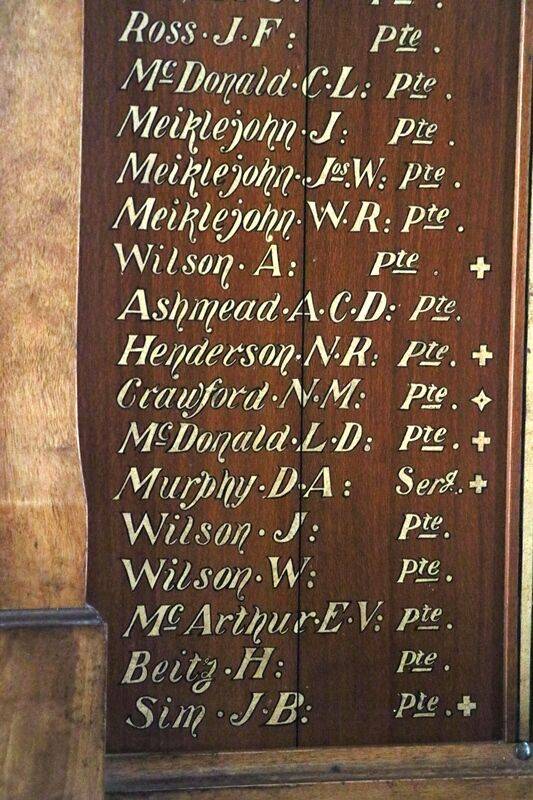 Ross. J. F: Pte.
McDonald. C. L: Pte.
Meiklejohn. J: Pte.
Meiklejohn. Jos. W: Pte.
Meiklejohn. W. R: Pte.
Wilson. A: Pte. +
Ashmead. A. C. D: Pte.
Henderson. N. R: Pte. +
Crawford. N. M: Pte. ✧
McDonald. L. D: Pte. +
Murphy. D. A: Serg. +
Wilson. J: Pte.
Wilson. W: Pte.
McArthur. E. V: Pte.
Beitz. H: Pte.
Sim. J. B: Pte. +